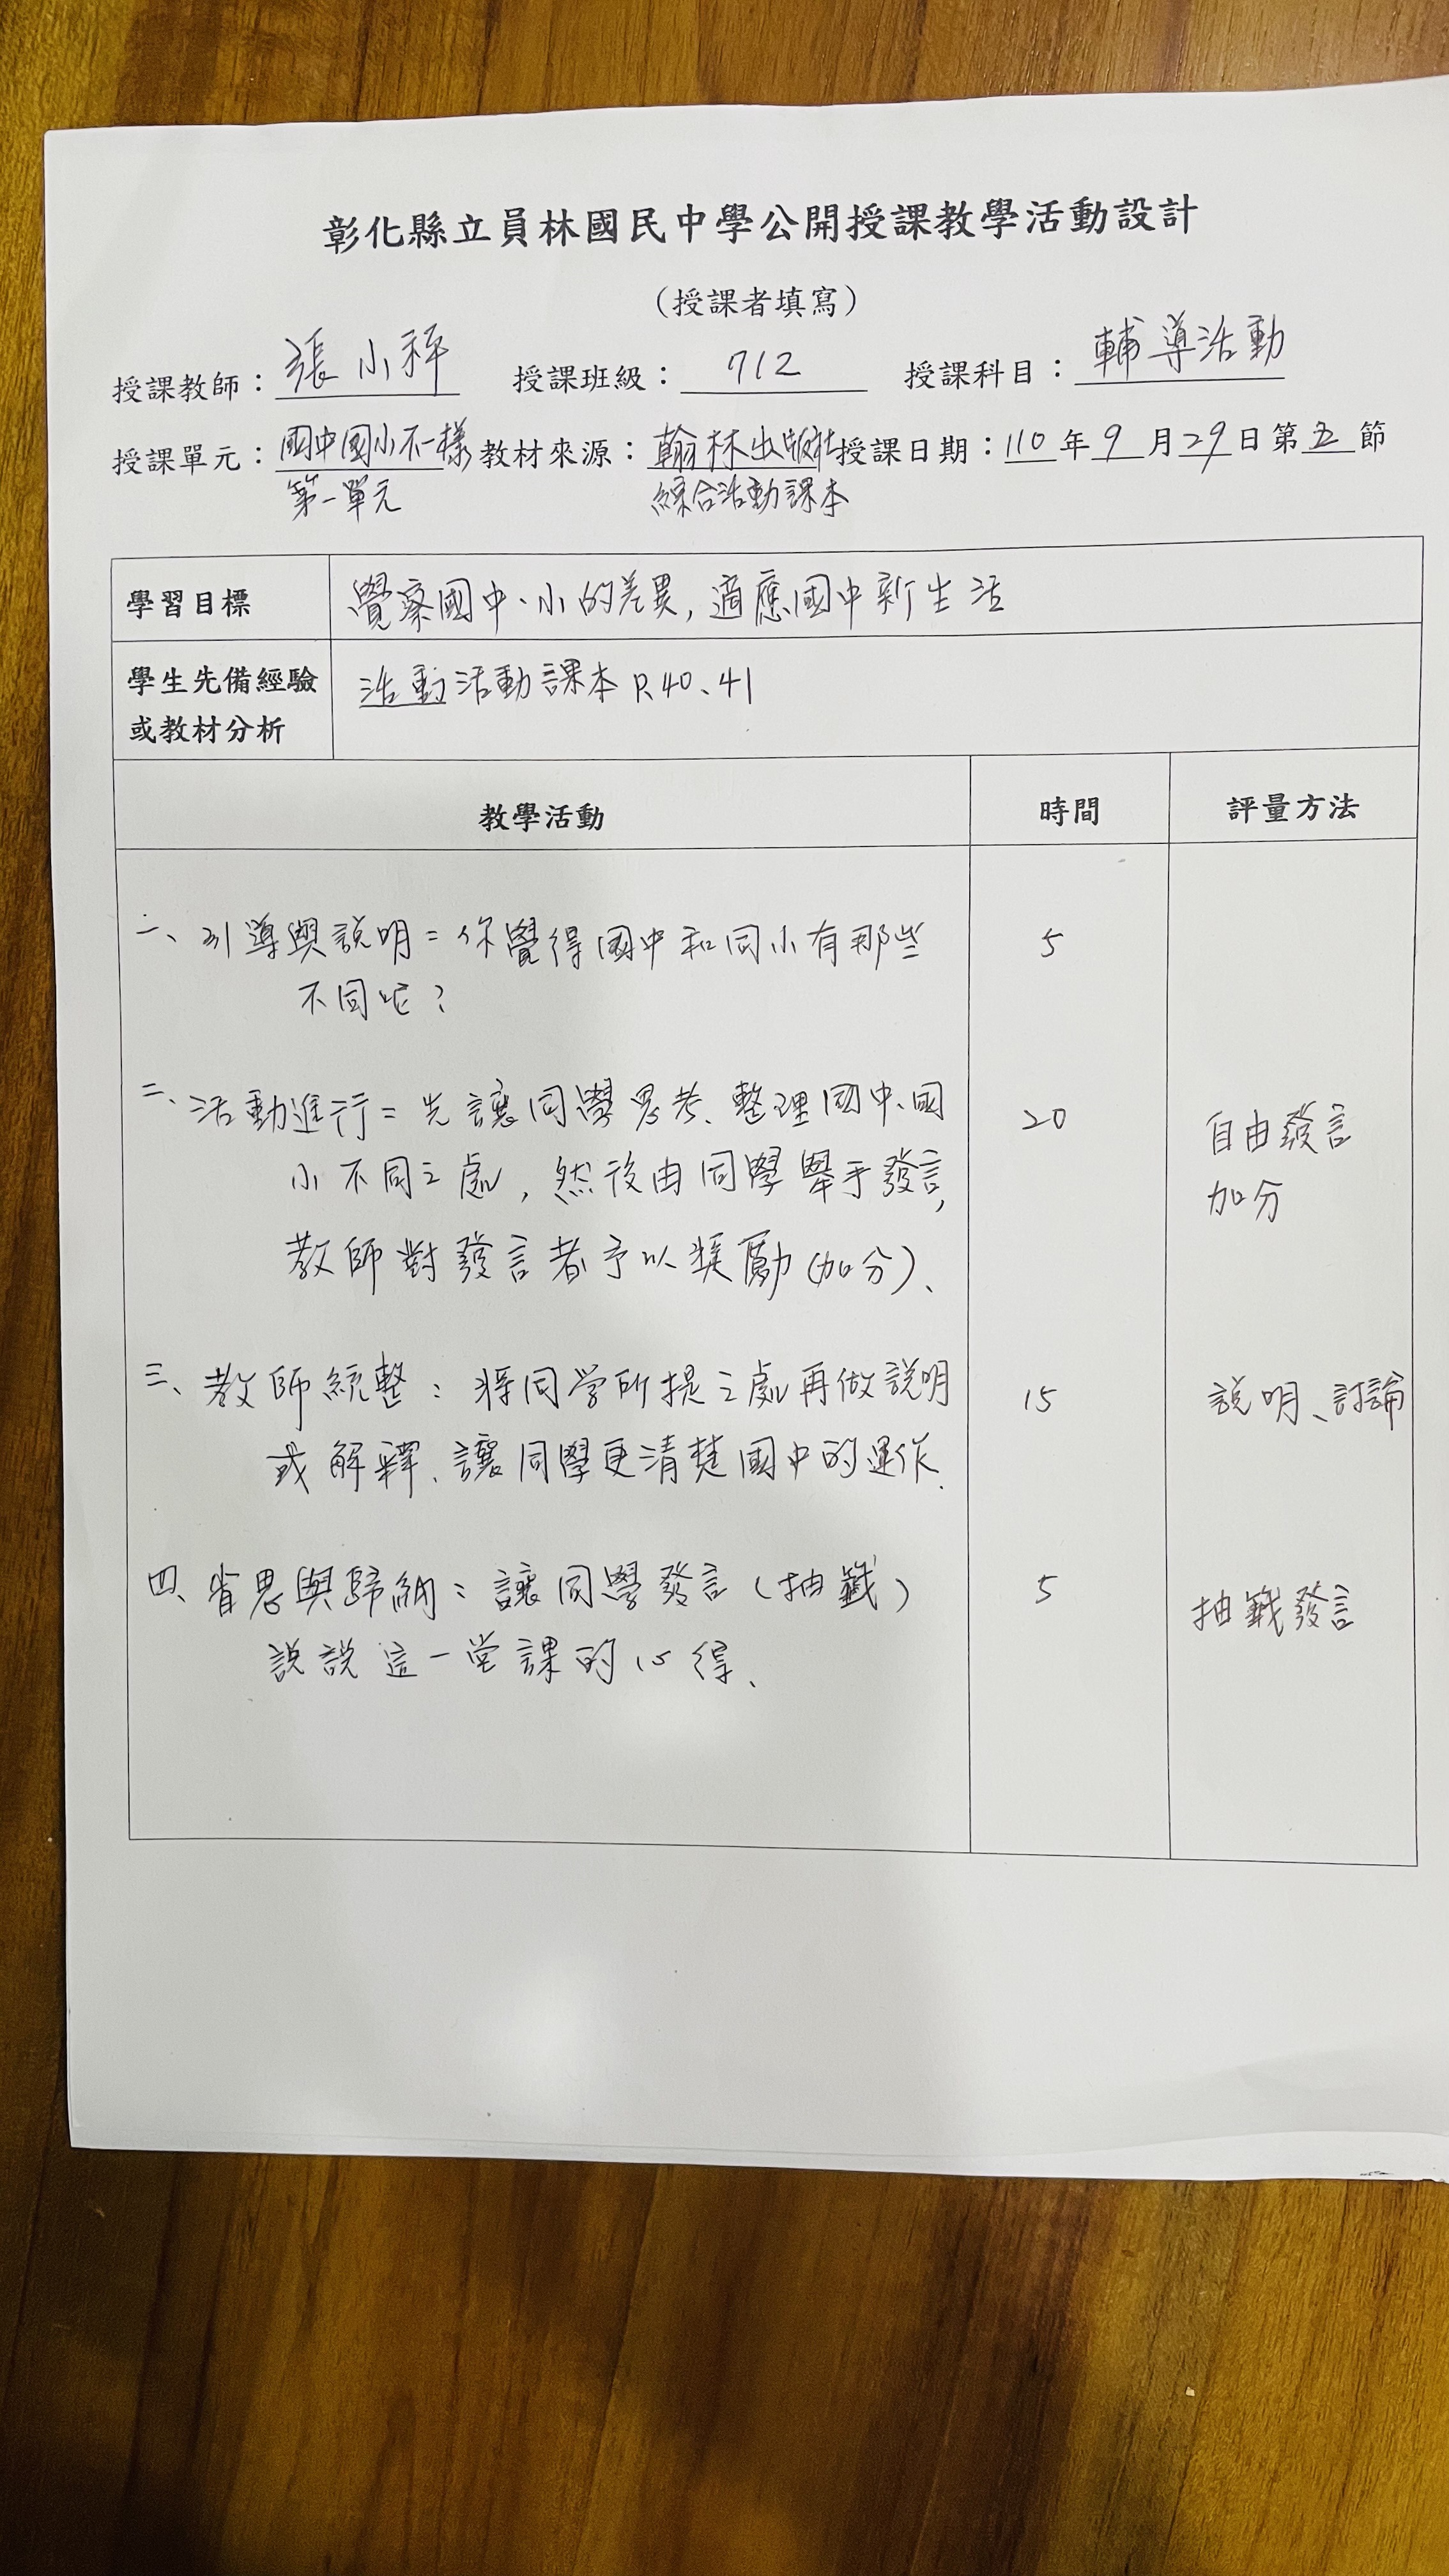 彰化縣立員林國民中學公開授課教學活動設計
(授課者填寫)
授課教師：張小秤 授課班級：712 授課科目：輔導活動
授課單元：國中國小不一樣 教材來源：翰林出版社 授課日期：110年9月29日第五節
第一單元 綜合活動課本
學習目標 覺察國中、小的差異, 適應國中新生活
學生先備經驗 活動活動課本 P.40、41
或教材分析
教學活動 時間 評量方法
一、引導與說明=你覺得國中和同小有那些 5
不同呢？
二、活動進行=先讓同學思考、整理國中、國 20 自由發言
小不同之處, 然後由同學舉手發言, 加分
教師對發言者予以獎勵(加分)、
三、教師統整：將同学所提之處再做說明 15 說明、討論
或解釋、讓同學更清楚國中的運作.
四、省思與歸納：讓同學發言(抽籤) 5 抽籤發言
說說這一堂課的心得、